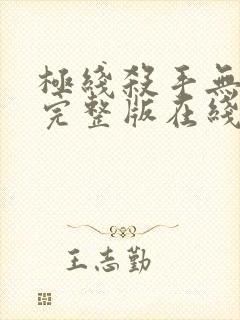 極綫殺手無
完整版在綫
王志勤